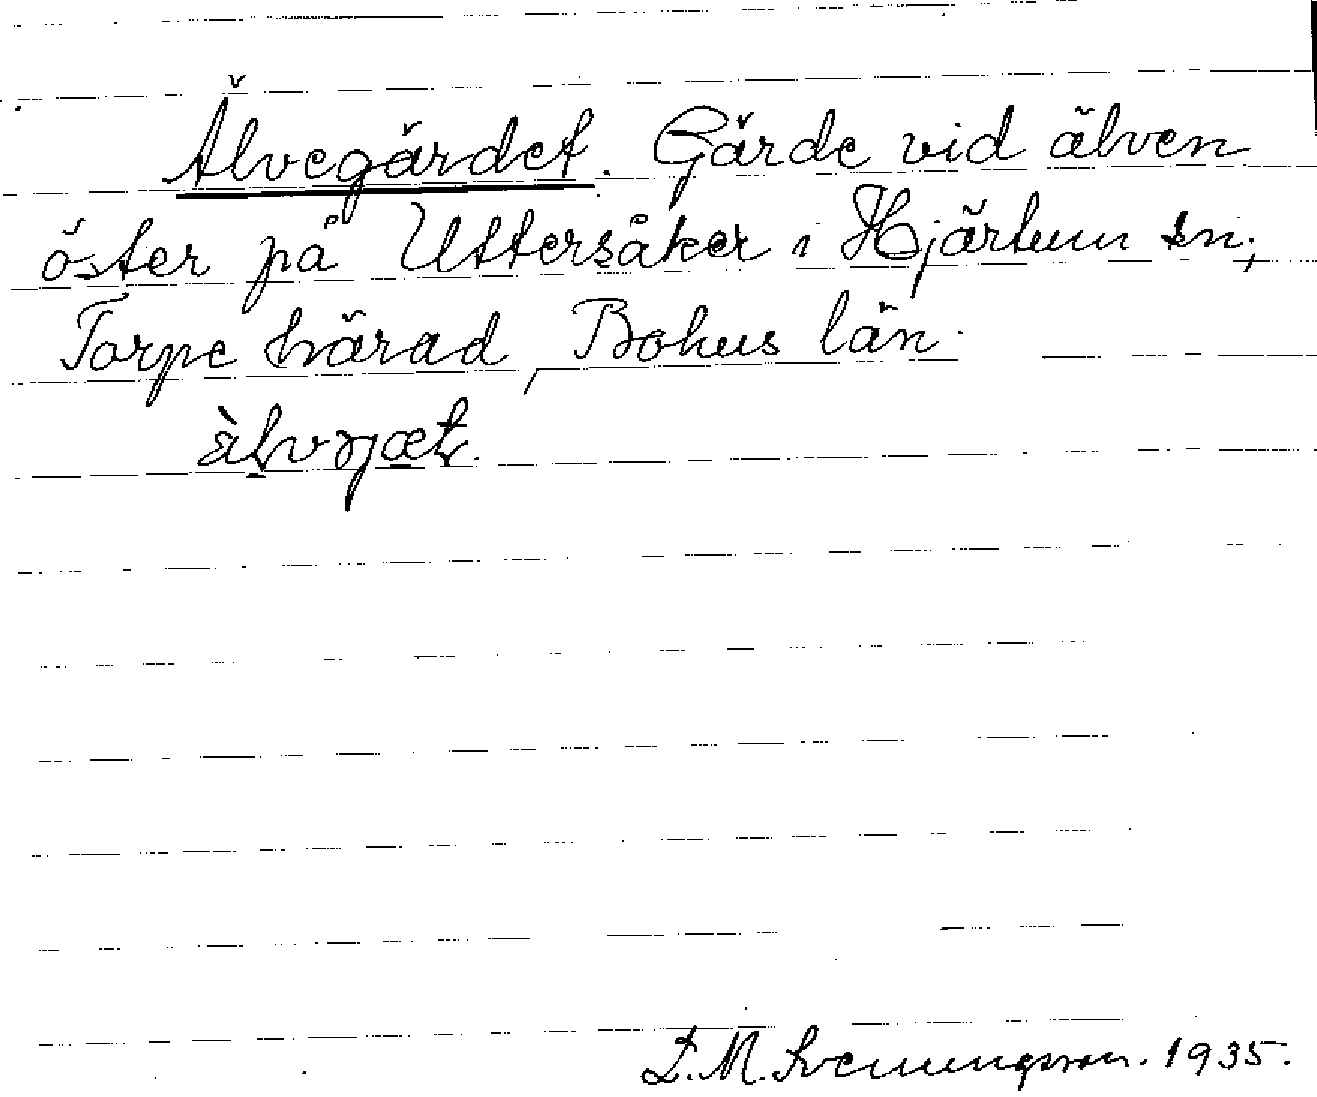 Älvegärdet. Gärde vid älven
öster på Uttersåker i Hjärtum sn,
Torpe härad, Bohus län.
L. M. Svenungsson. 1935.